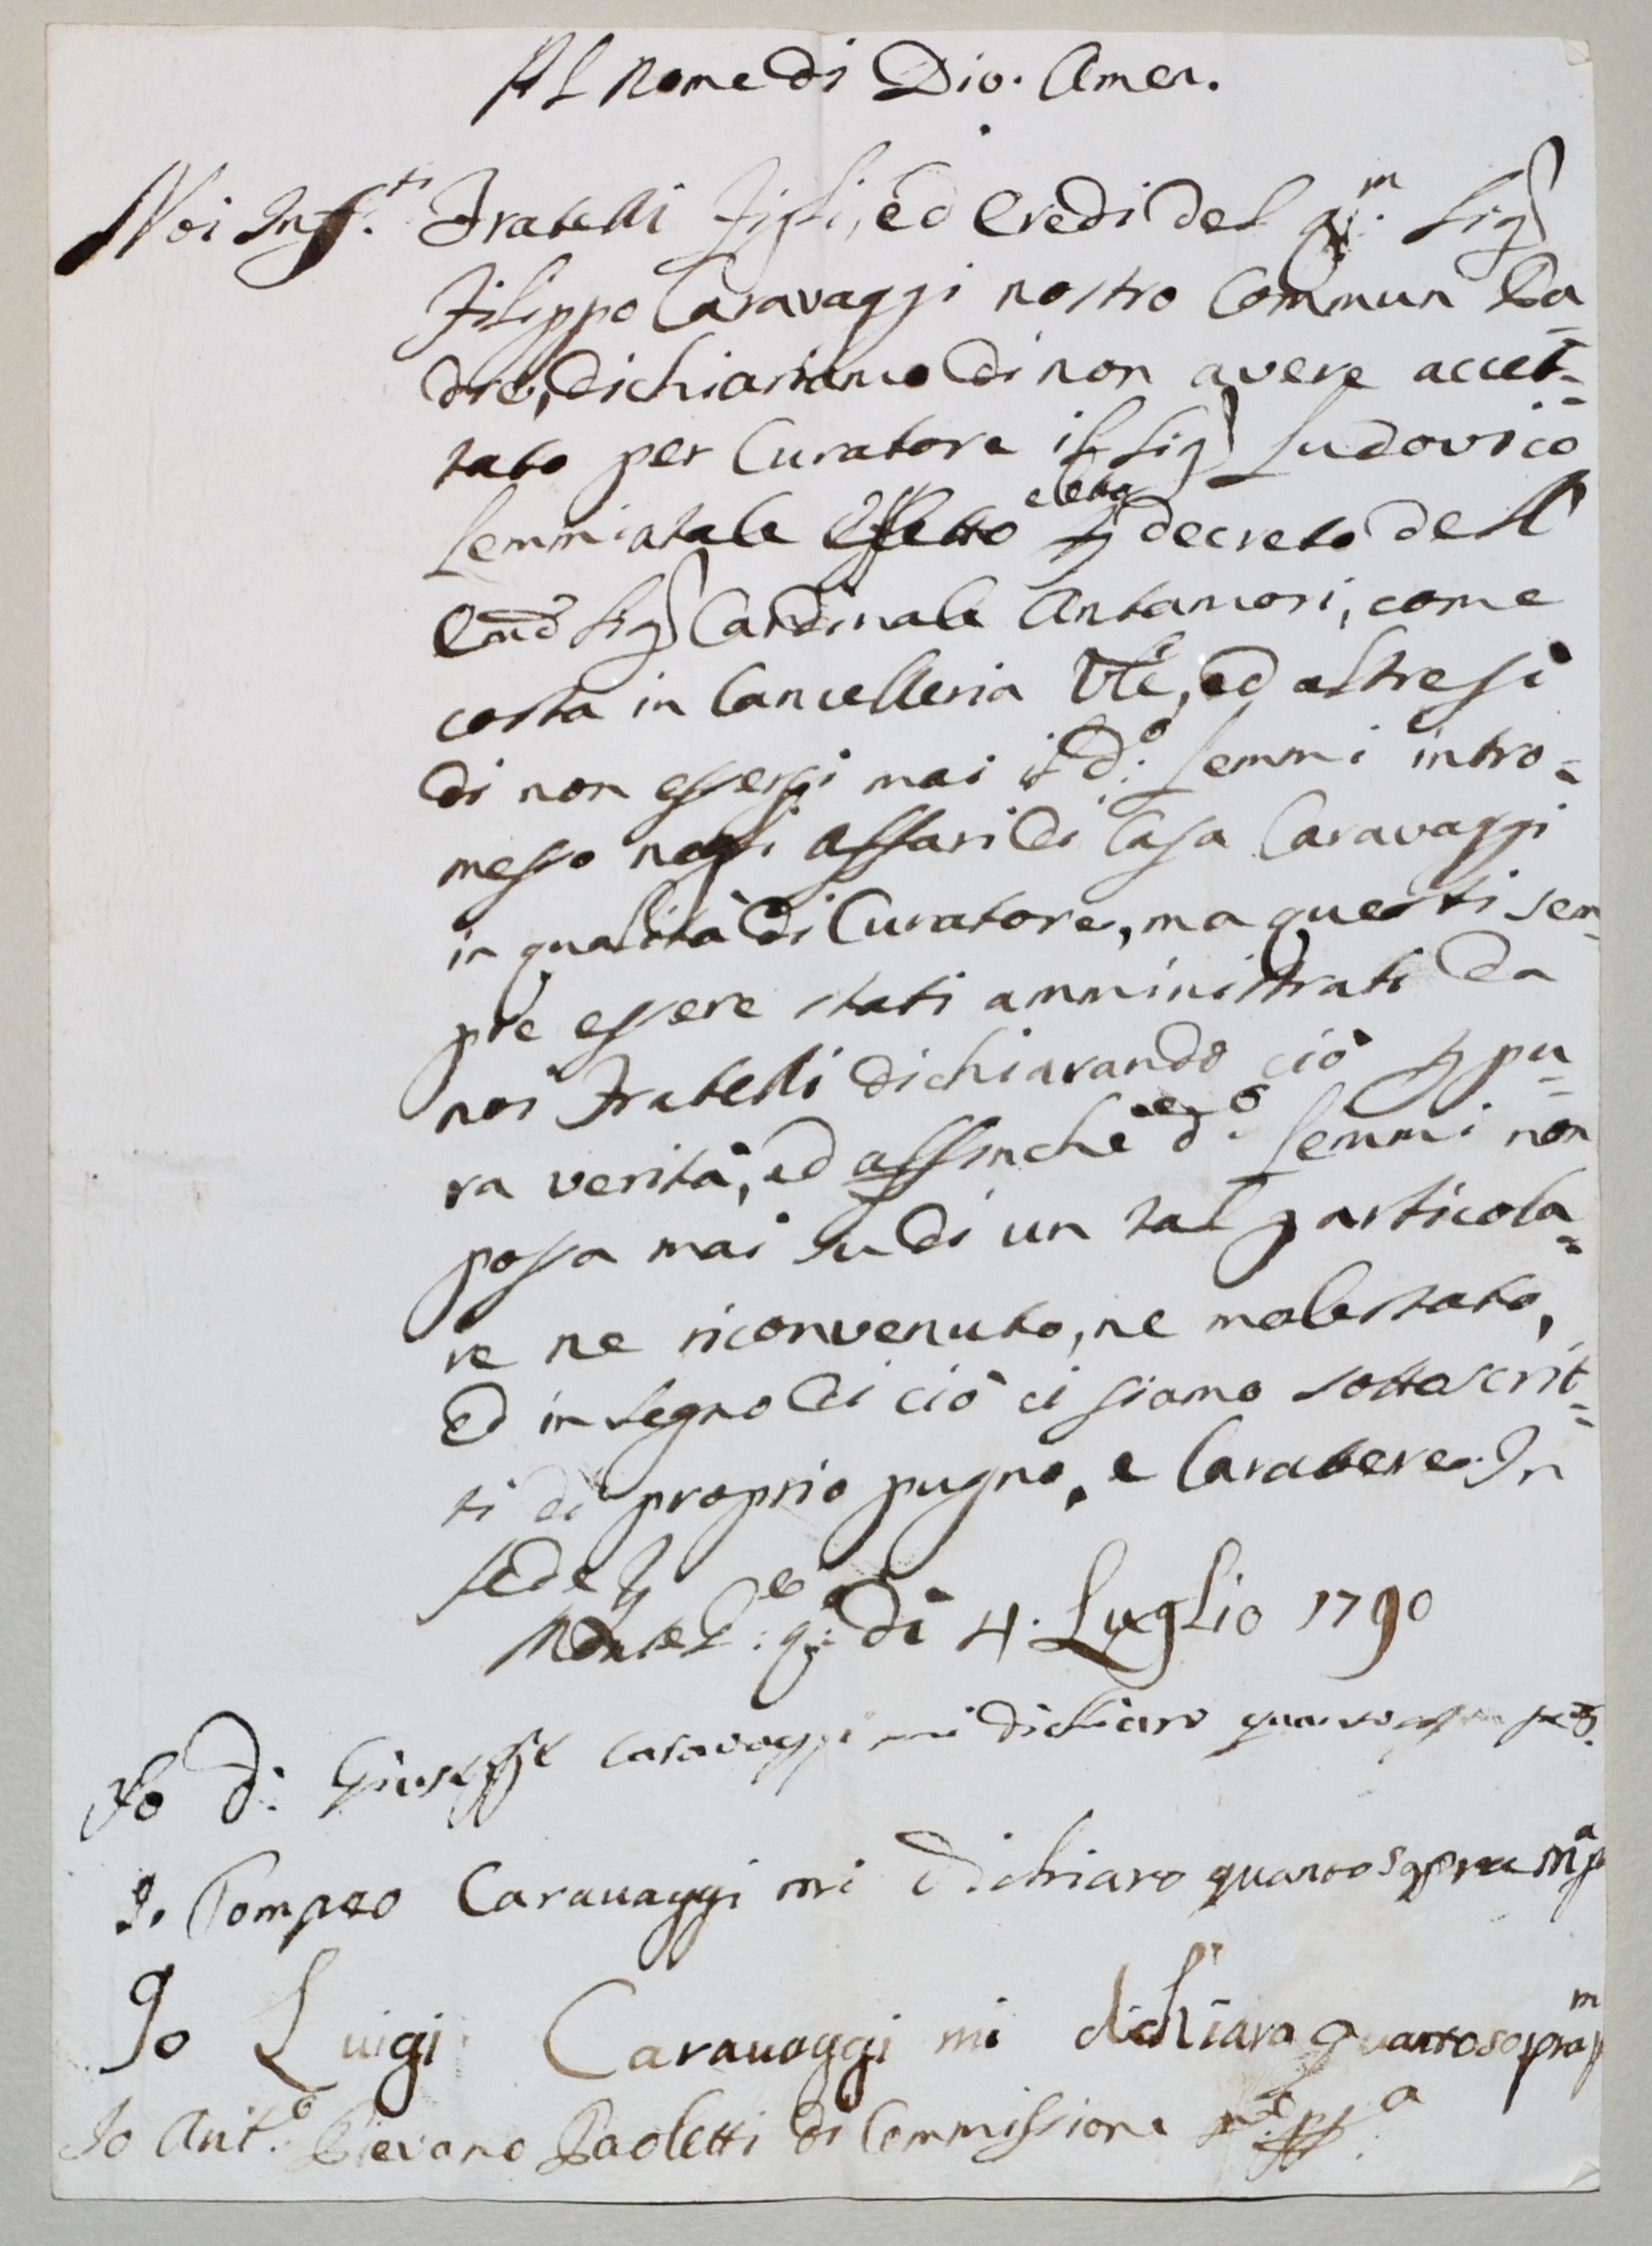 Al Nome di Dio. Amen.
Noi Inf.ti Fratelli Figli, ed Eredi del q.m Sig
Filippo Caravaggi nostro Commun Pa=
dre, dichiariamo di non avere accet=
tato per Curatore il Sig Ludovico
Lemmi a tale effetto eletto per decreto dell
Emo Sig Cardinale Antamori, come
costa in Cancelleria Vle, ed altresì
di non essersi mai il d.o Lemmi intro=
messo negli affari di Casa Caravaggi
in qualità di Curatore, ma questi sem
pre essere stati amministrati da
noi Fratelli dichiarando ciò per pu=
ra verità, ed affinche d.o Lemmi non
possa mai su di un tal particola=
re ne riconvenuto, ne molestato,
Ed in segno di ciò ci siamo sottoscrit=
ti di proprio pugno, e Caratere. In
fede
Montel:e q: dì 4. Luglio 1790
Io d: Giuseppe Caravaggi mi dichiaro quanto
Io Pompeo Caravaggi mi dichiaro quanto sopra mp
Io Luigi Caravaggi mi dichiara quanto sopra m
Io Ant.o Pievano Paoletti di Commissione